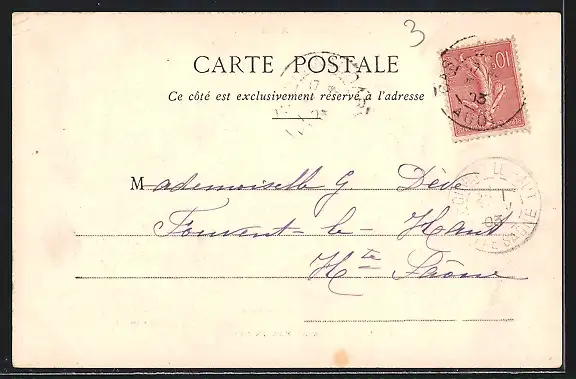 3
CARTE POSTALE
Ce côté est exclusivement réservé à l'adresse
10
03
Mademoiselle G. Dève
Fouvent-le-Haut
Hte Saône
03